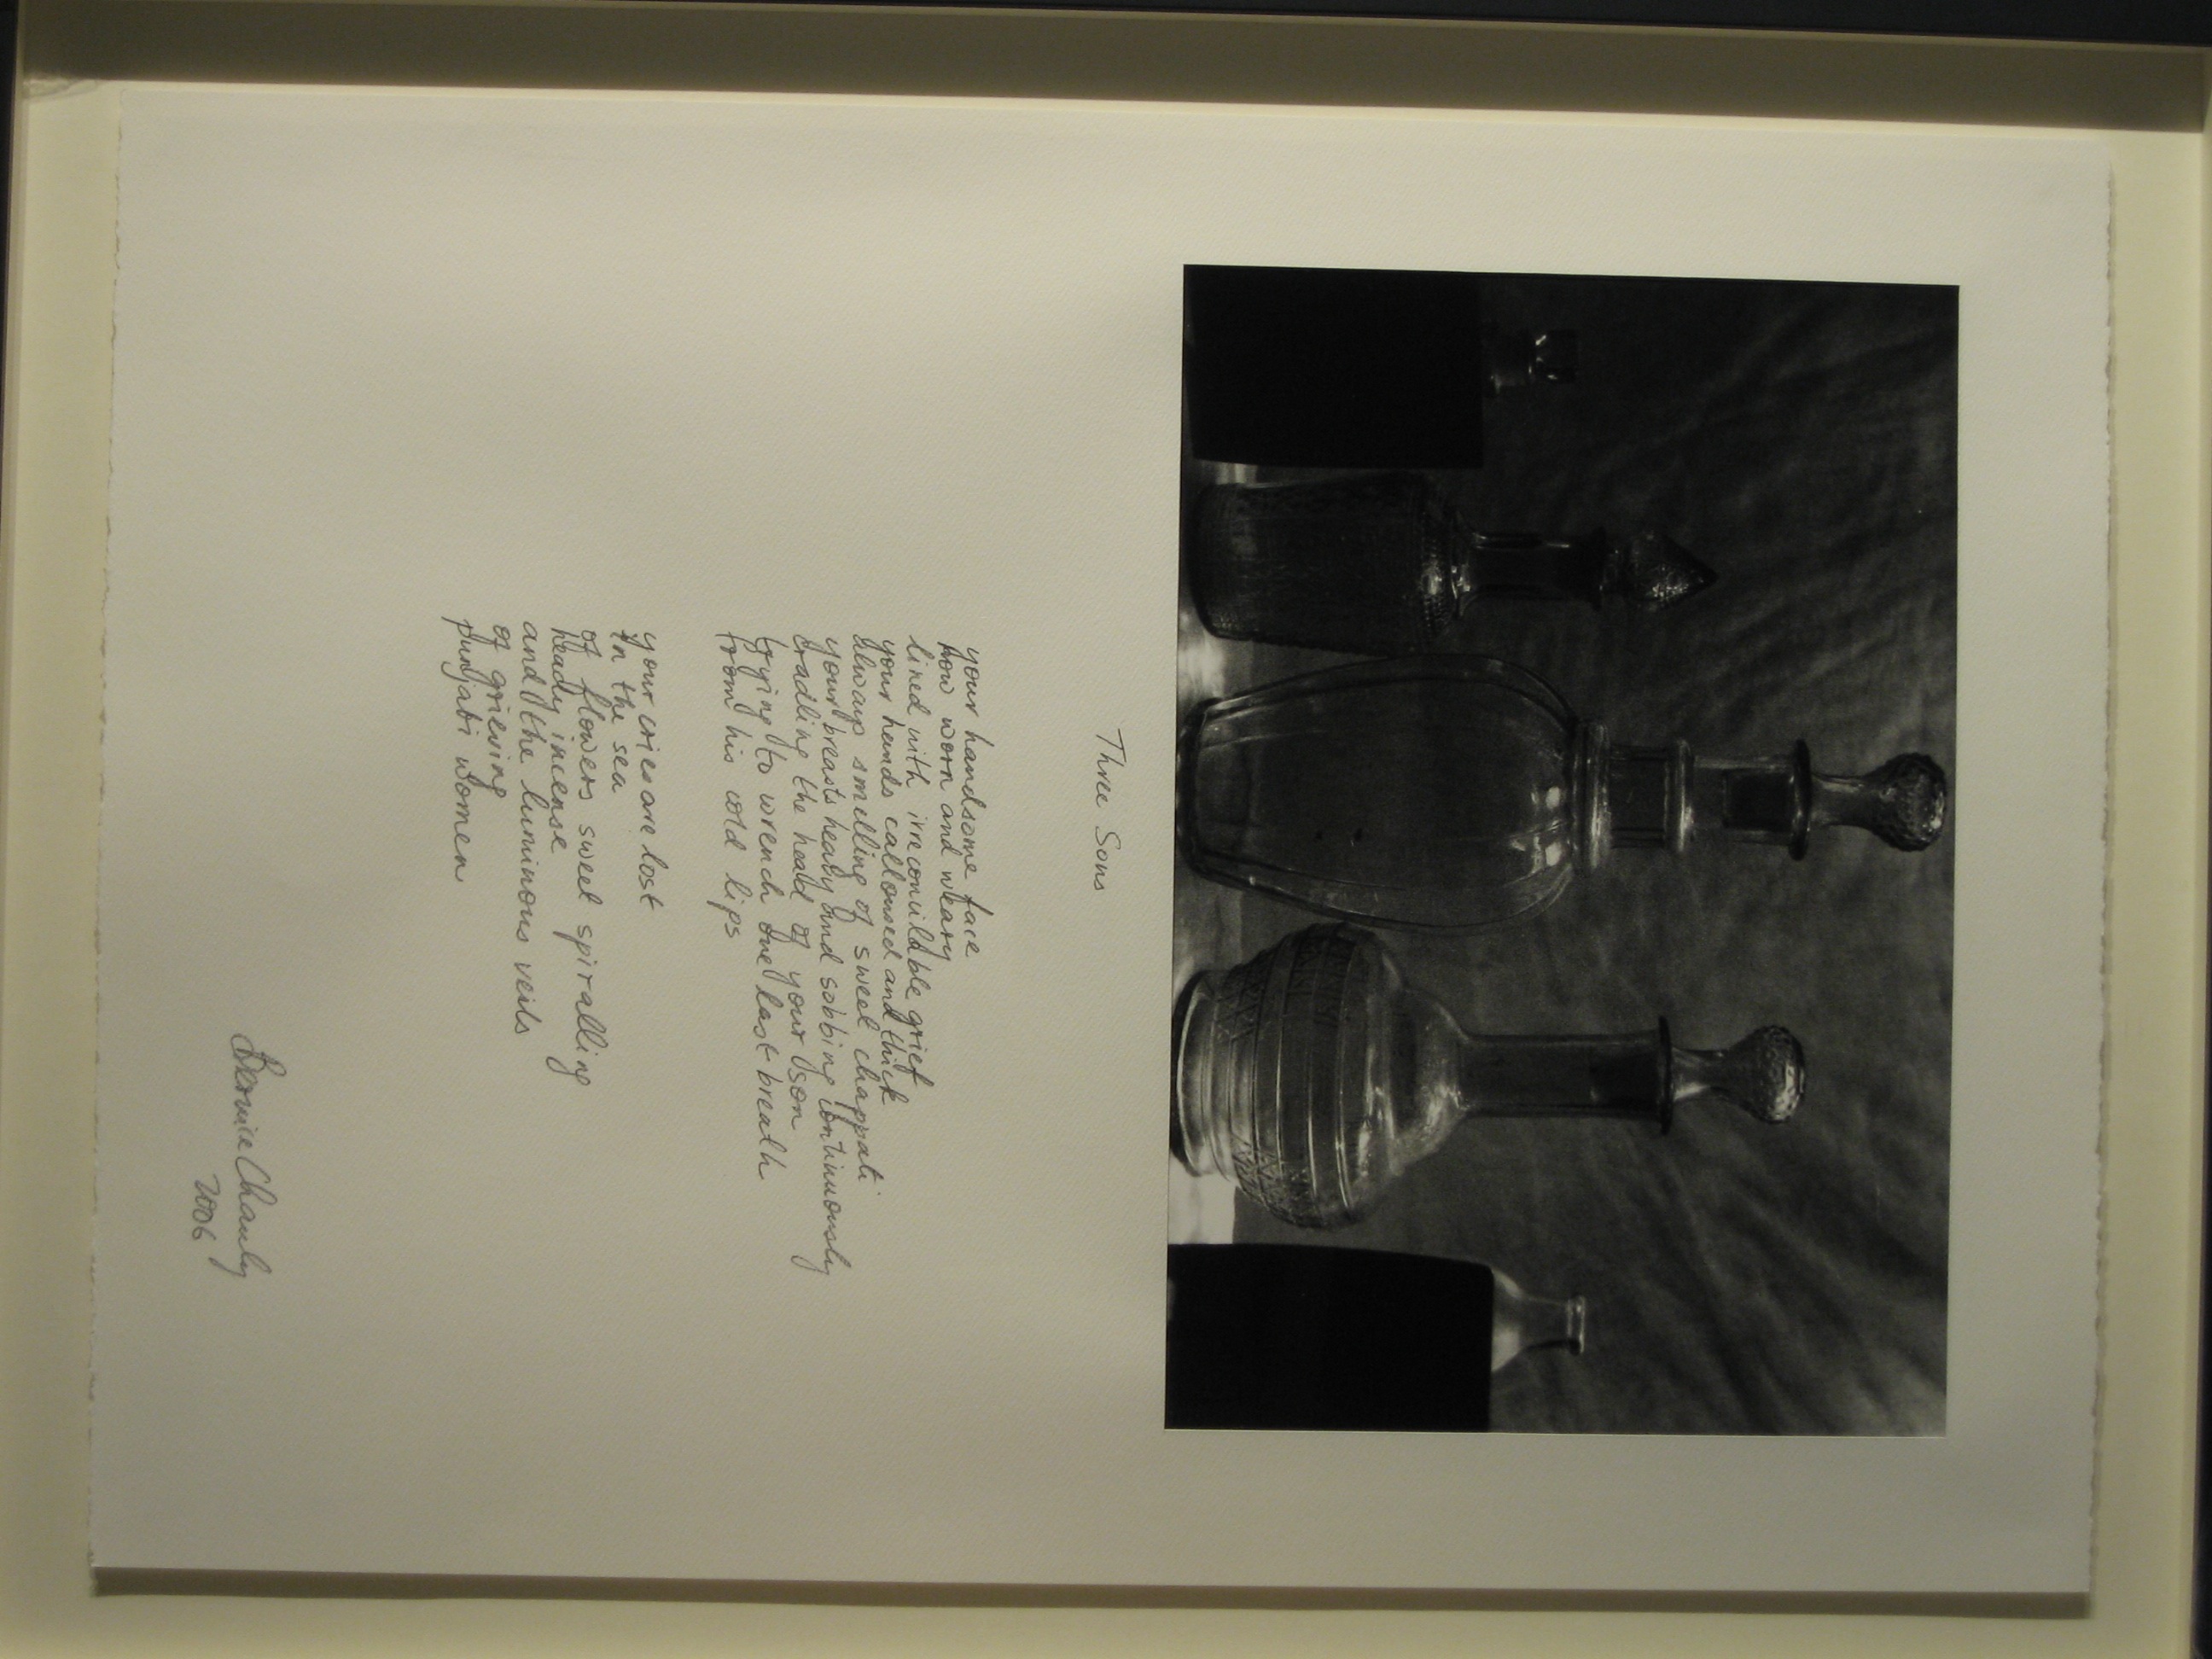 Three Sons
your handsome face
now worn and weary
lined with irreconcilable grief
your hands calloused and thick
always smelling of sweet chappati
your breasts heavy and sobbing continuously
cradling the head of your son
trying to wrench one last breath
from his cold lips
your cries are lost
in the sea
of flowers sweet spiralling
heady incense
and the luminous veils
of grieving
punjabi women
Bernice Chauly
2006